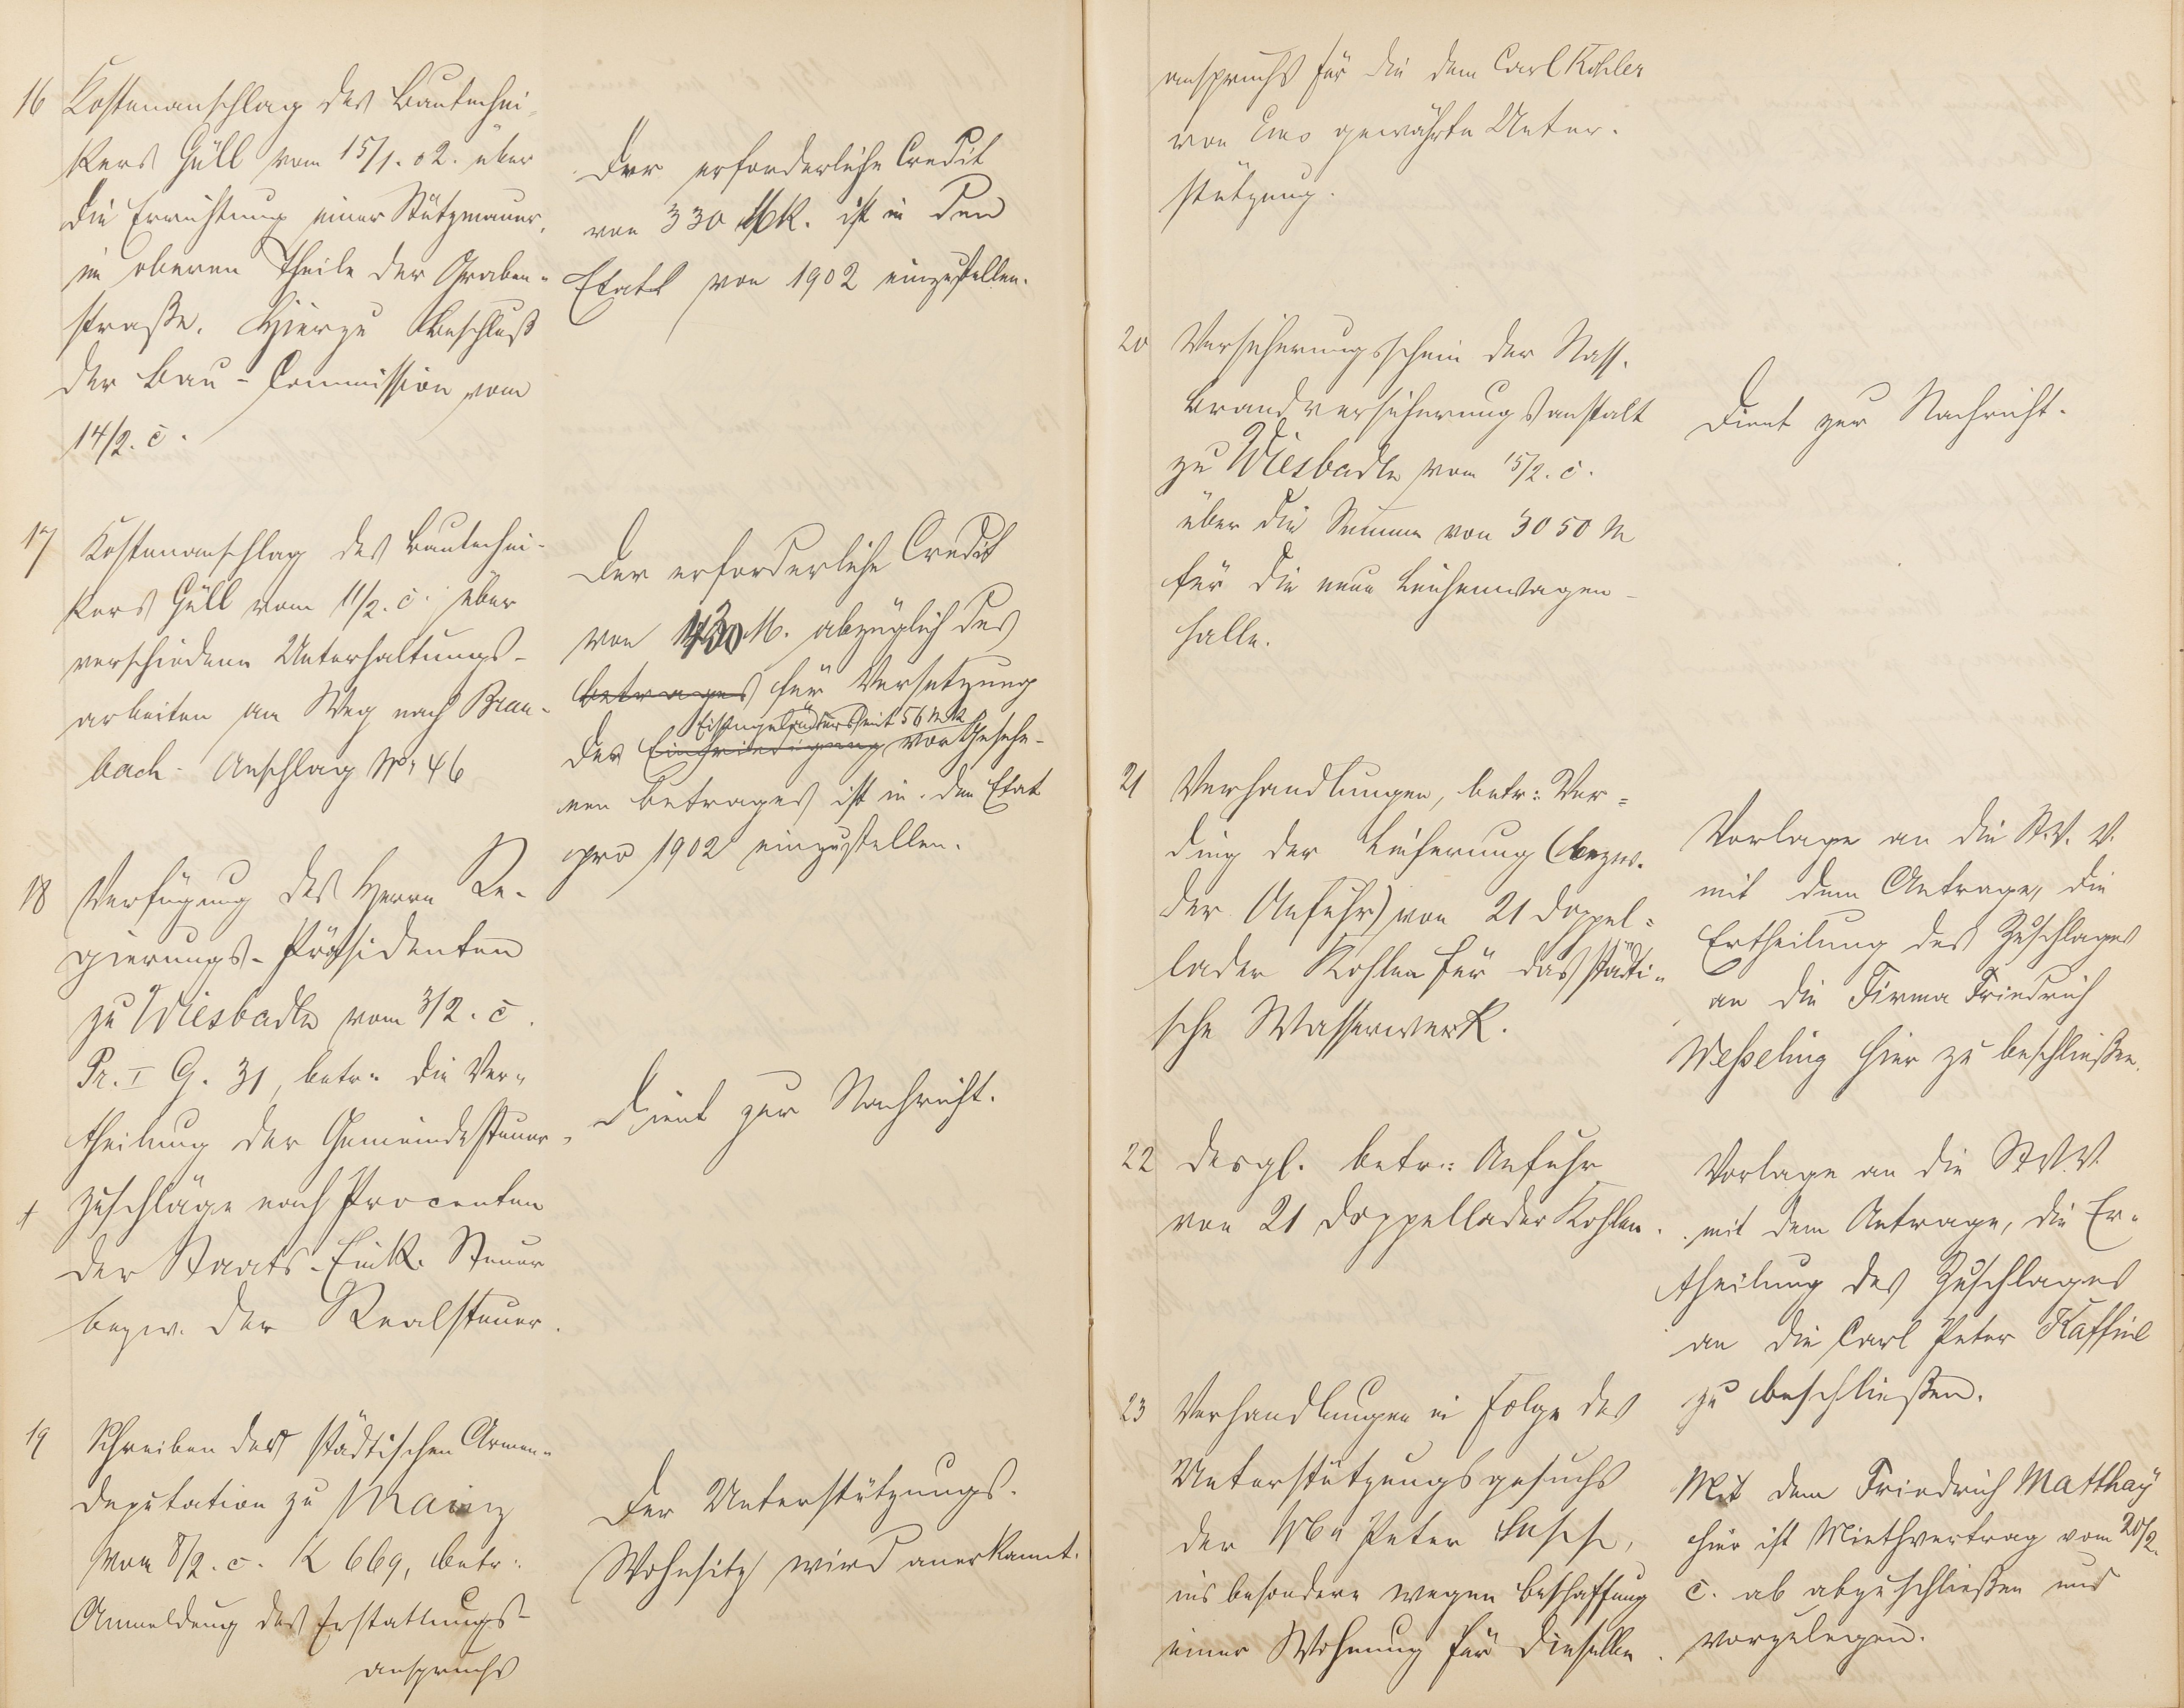 16 Kostenanschlag des Bautechni-
kers Güll vom 15/1. 02. über
die Errichtung einer Stützmauer,
im oberen Theile der Graben-
straße. Hierzu Beschluß
der Bau-Commission vom
14/2. c.
Der erforderliche Credit
von 330 Mk. ist in den
Etat von 1902 einzustellen.
17 Kostenanschlag des Bautechni-
kers Güll vom 11/2. c. über
verschiedene Unterhaltungs-
arbeiten am Weg nach Brau-
bach - Anschlag No 46
Der erforderliche Credit
von 430 M. abzüglich des
betrages für Versetzung
Eisengeländers mit 56 Mk
des Einfriedigung vorgesehe-
nen Betrages ist in den Etat
pro 1902 einzustellen.
18 Verfügung des Herrn Re-
gierungs-Präsidenten
zu Wiesbaden vom 3/2. c.
Pr. I G. 31, betr: die Ver-
theilung der Gemeindesteuer-
zuschläge nach Procenten
der Staats-Eink. Steuer
bezw. der Realsteuer.
Dient zur Nachricht.
19 Schreiben der städtischen Armen-
deputation zu Mainz
vom 8/2. c. K 669, betr:
Anmeldung des Erstattungs-
anspruchs
Der Unterstützungs-
Wohnsitz wird anerkannt.
anspruchs für die dem Carl Kohler
von Ems gewährte Unter-
stützung.
20 Versicherungsschein der Nass.
Brandversicherungsanstalt
zu Wiesbaden vom 15/2. c.
über die Summe von 3050 M
für die neue Leichenwagen-
halle.
Dient zur Nachricht.
21 Verhandlungen, betr: Ver-
ding der Lieferung (bezw.
der Anfuhr) von 21 Doppel-
lader Kohlen für das städti-
sche Wasserwerk.
Vorlage an die St. V. V.
mit dem Antrage, die
Ertheilung des Zuschlages
an die Firma Friedrich
Weßeling hier zu beschließen.
22 desgl. betr: Anfuhr
von 21 Doppellader Kohlen.
Vorlage an die St. V. V.
mit dem Antrage, die Er-
theilung des Zuschlages
an die Carl Peter Kaffine
zu beschließen.
23 Verhandlungen in Folge des
Unterstützungsgesuchs
der Peter
insbesondere wegen Beschaffung
einer Wohnung für dieselbe.
Mit dem Friedrich Matthay
hier ist Miethvertrag vom 20/2.
c. ab abzuschließen und
vorzulegen.